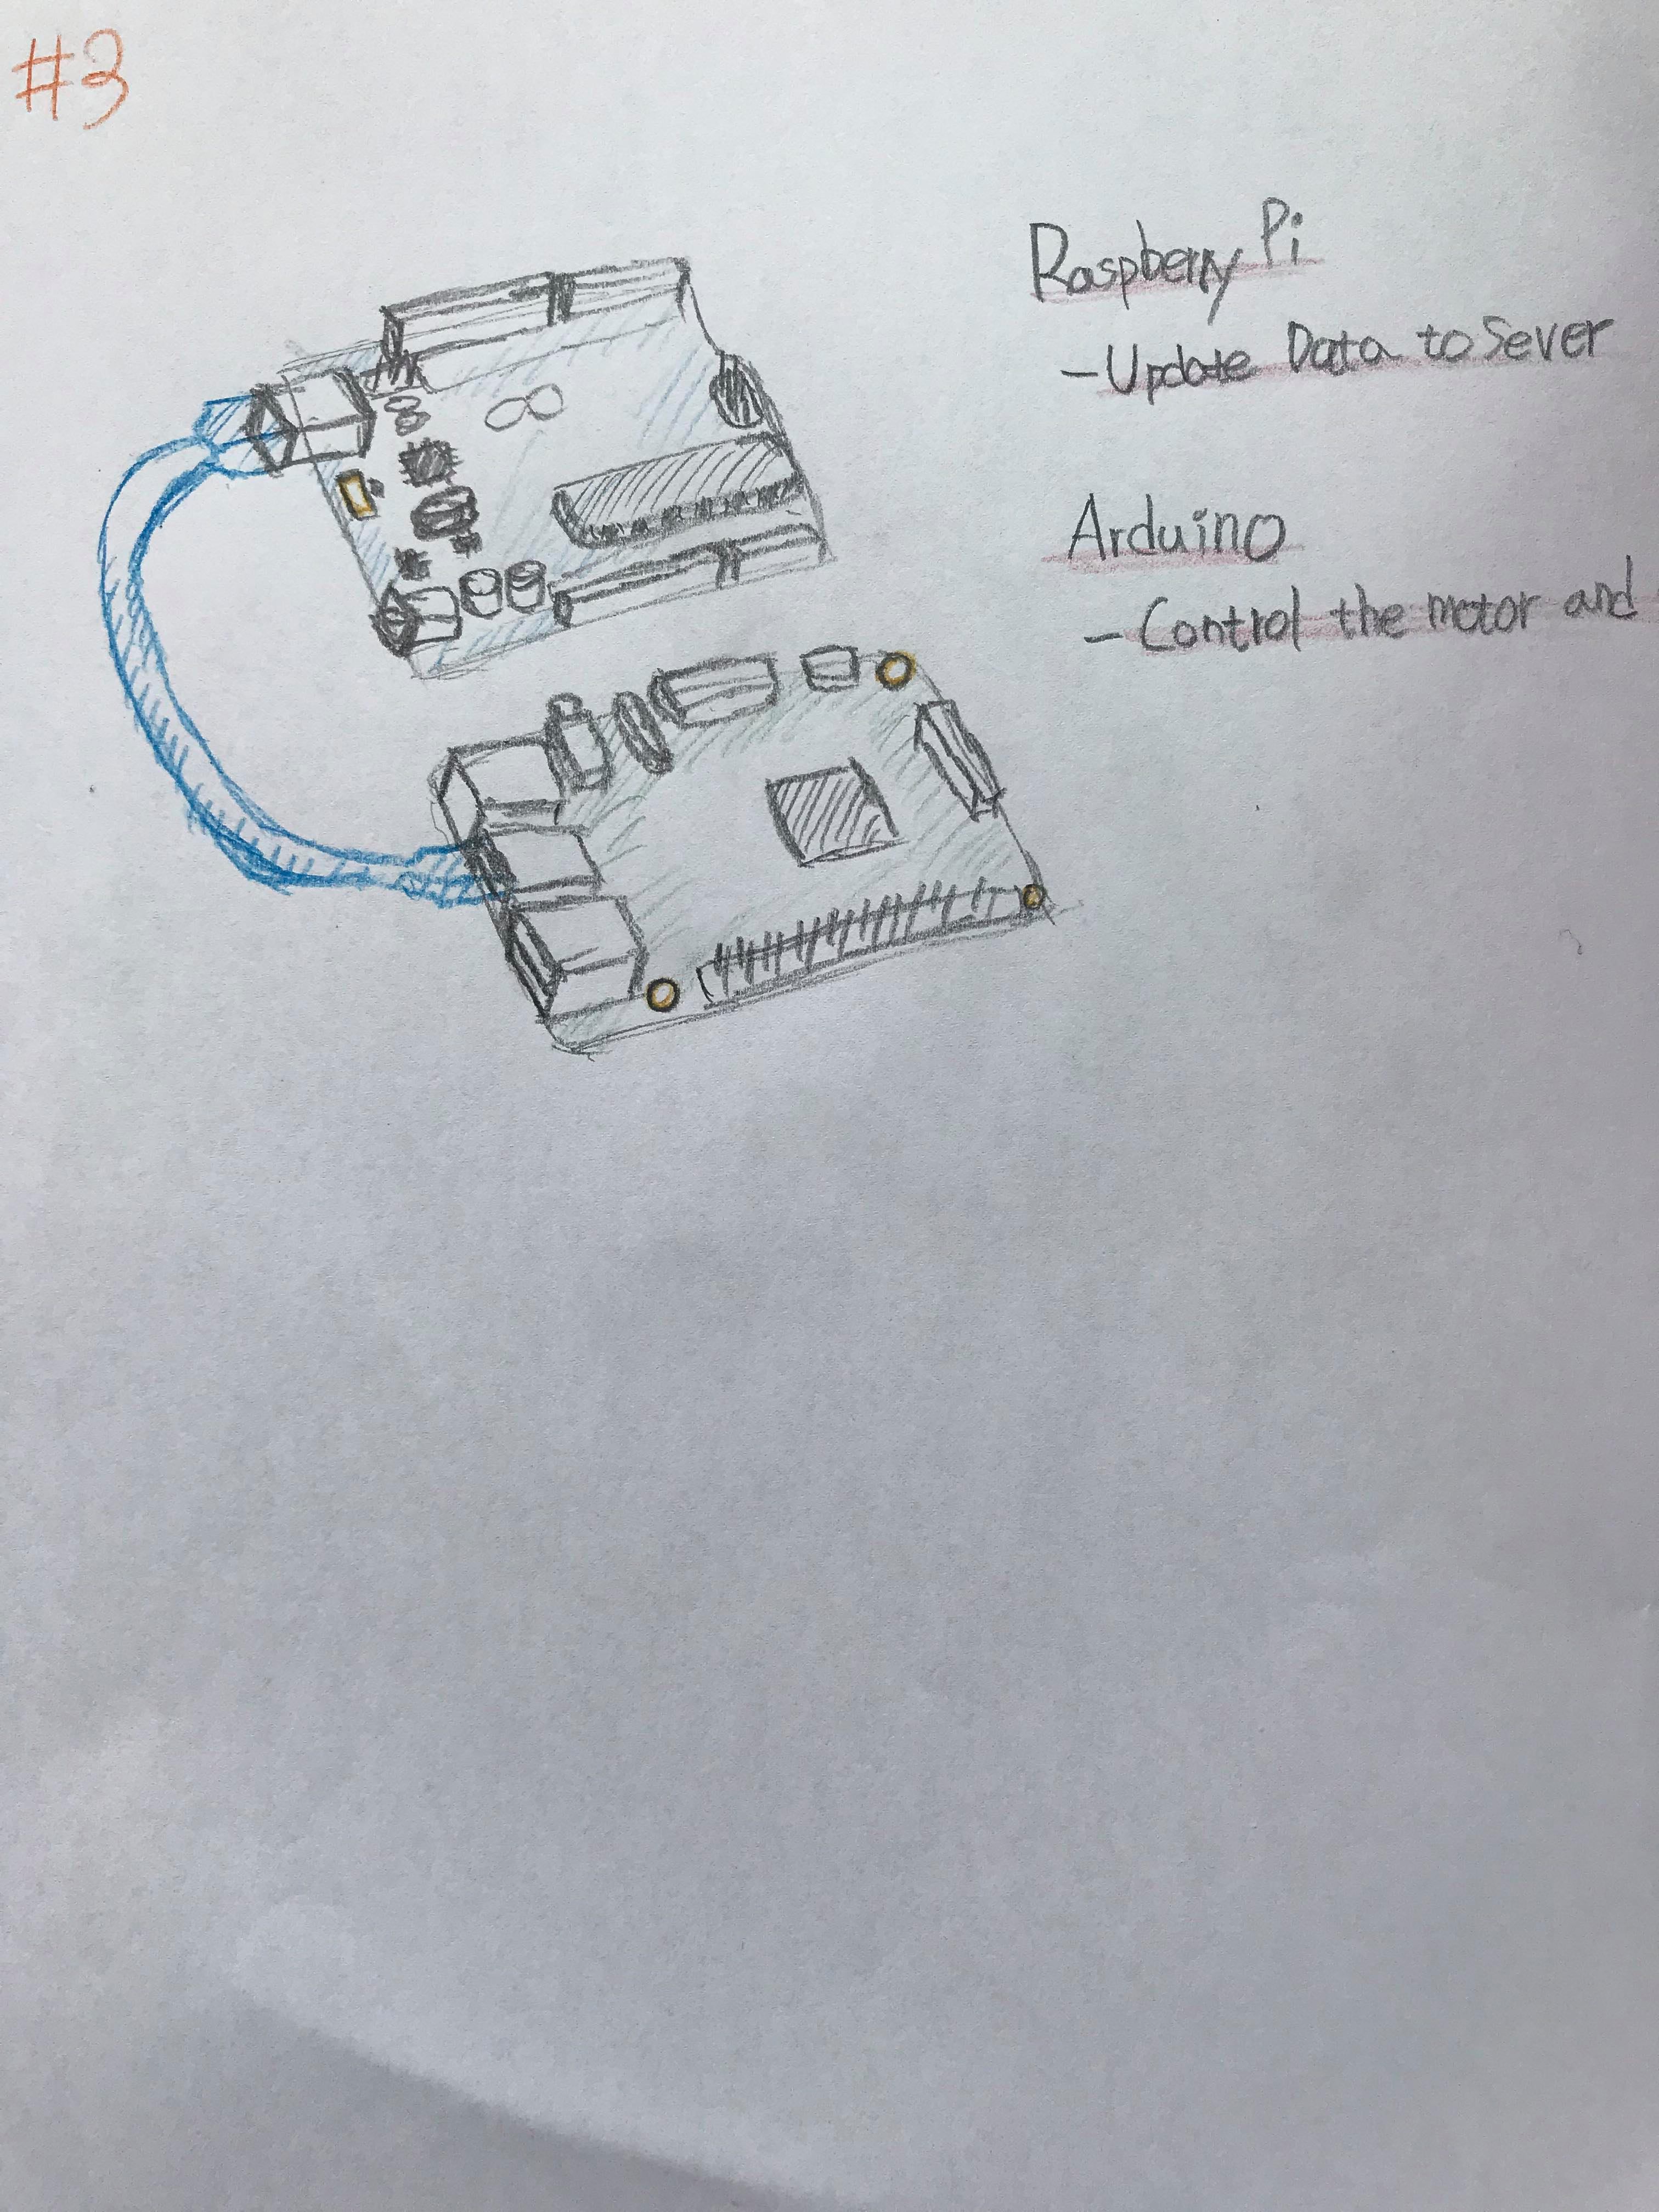 #3
Raspberry Pi
- Update Data to Sever
Arduino
- Control the motor and